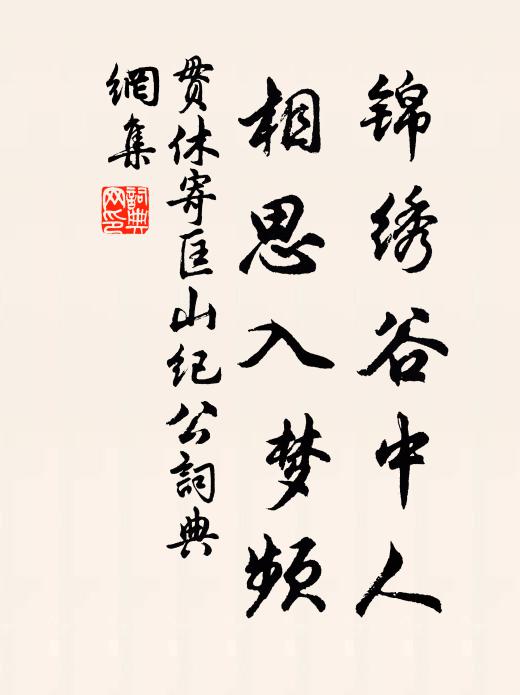 锦绣谷中人
相思入梦频
贯休寄匡山纪公詞典
網集
詞典
网印